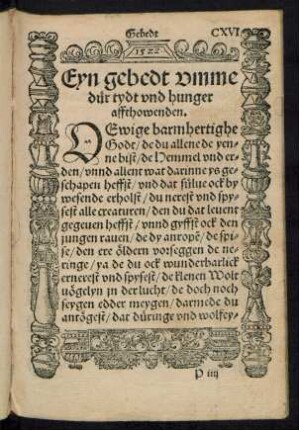 Gebedt CXVI
1522
Eyn gebedt vmme
dür tydt vnd hunger
affthowenden.
O Ewige barmhertighe
Godt/ de du allene de yen-
ne bist/ de Hemmel vnd er-
den/ vnnd allent wat darinne ys ge-
schapen heffst/ vnd dat sülue ock by
wesende erholst/ du nerest vnd spy-
sest alle creaturen/ den du dat leuent
gegeuen heffst/ vnnd gyffst ock den
jungen rauen/ de dy anropē/ de spi-
se/ den ere öldern vorseggen de ne-
ringe/ ya de du ock wunderbarlick
ernerest vnd spysest/ de klenen Wolt
vögelyn jn der lucht/ de doch noch
seygen edder meygen/ darmede du
antögest/ dat düringe vnd wolfey-
P iiij